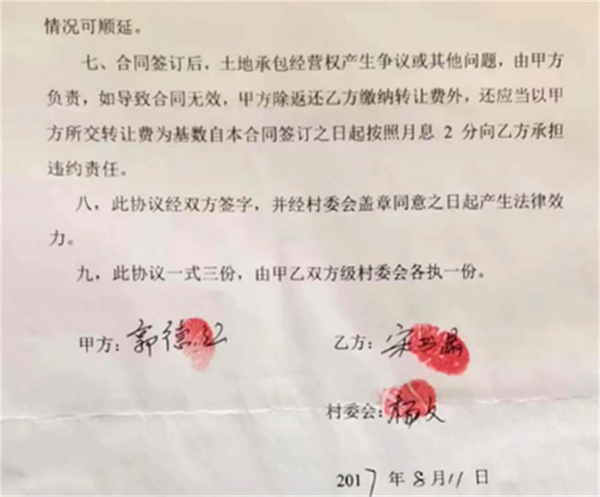 情况可顺延。
七、合同签订后，土地承包经营权产生争议或其他问题，由甲方
负责，如导致合同无效，甲方除返还乙方缴纳转让费外，还应当以甲
方所交转让费为基数自本合同签订之日起按照月息 2 分向乙方承担
违约责任。
八，此协议经双方签字，并经村委会盖章同意之日起产生法律效
力。
九，此协议一式三份，由甲乙双方级村委会各执一份。
甲方：郭德江
乙方：宋
村委会：杨文
2017 年 8 月 11 日